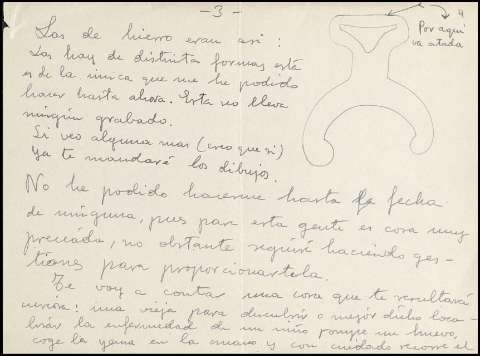 -3-
4
Por aquí
va atada
Las de hierro eran asi:
Las hay de distinta formas este
es de la unica que me he podido
hacer hasta ahora. Esta no lleva
ningún grabado.
Si veo alguna mas (creo que si)
ya te mandaré los dibujos.
No he podido hacerme hasta la fecha
de ninguna, pues para esta gente es cosa muy
preciada, no obstante seguiré haciendo ges-
tiones para proporcionartela.
Te voy a contar una cosa que te resultará
curiosa: una vieja para descubrir o mejor dicho loca-
lizar la enfermedad de un niño rompe un huevo,
coge la yema en la mano y con cuidado recorre el